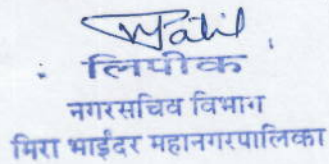 Patil
लिपीक
नगरसचिव विभाग
मिरा भाईंदर महानगरपालिका